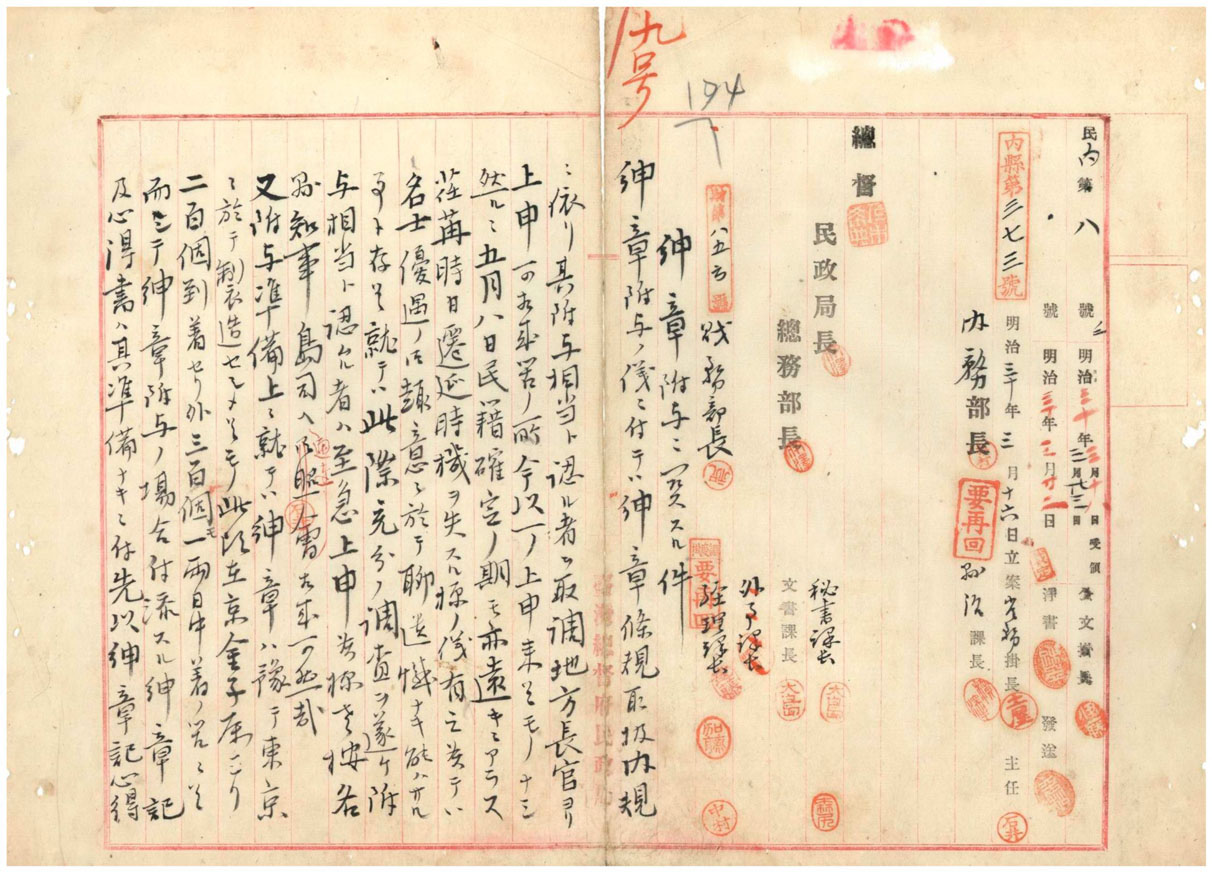 九号
194
民内第八號ノ三
明治三十年三月十八日受領
明治三十年三月廿三日
全文書課長
內縣第三七三號
號
明治三十年三月廿二日
淨書
發送
明治三十年三月十六日立案
掛長
主任
內務部長
要再回
縣治課長
總督
民政局長
總務部長
秘書課長
文書課長
外事課長
財第八五号
財務部長
要再回
經理課長
紳章附与ニ関スル件
紳章附与ノ儀ニ付テハ紳章條規取扱內規
ニ依リ其附与相当ト認ル者ヲ取調地方長官ヨリ
上申可相成筈ノ所今以一ノ上申来ルモノナシ
然ルニ五月八日民籍確定ノ期モ亦遠キニアラス
荏苒時日遷延時機ヲ失スル様ノ儀有之候テハ
名士優遇ノ御趣意ニ於テ聊遺憾ナキ能ハサル
事ト存候就テハ此際充分ノ調査ヲ遂ケ附
与相当ト認ムル者ハ至急上申候様各
縣知事島司ヘ御照會相成可然哉
又附与準備上ニ就テハ紳章ハ豫テ東京
ニ於テ製造セシメ候モ此頃在京金子属ヨリ
二百個到着セリ外三百個モ一両日中着ノ筈ニ候
而シテ紳章附与ノ場合付添スル紳章記
及心得書ハ其準備ナキニ付先以紳章記心得
臺灣總督府民政局